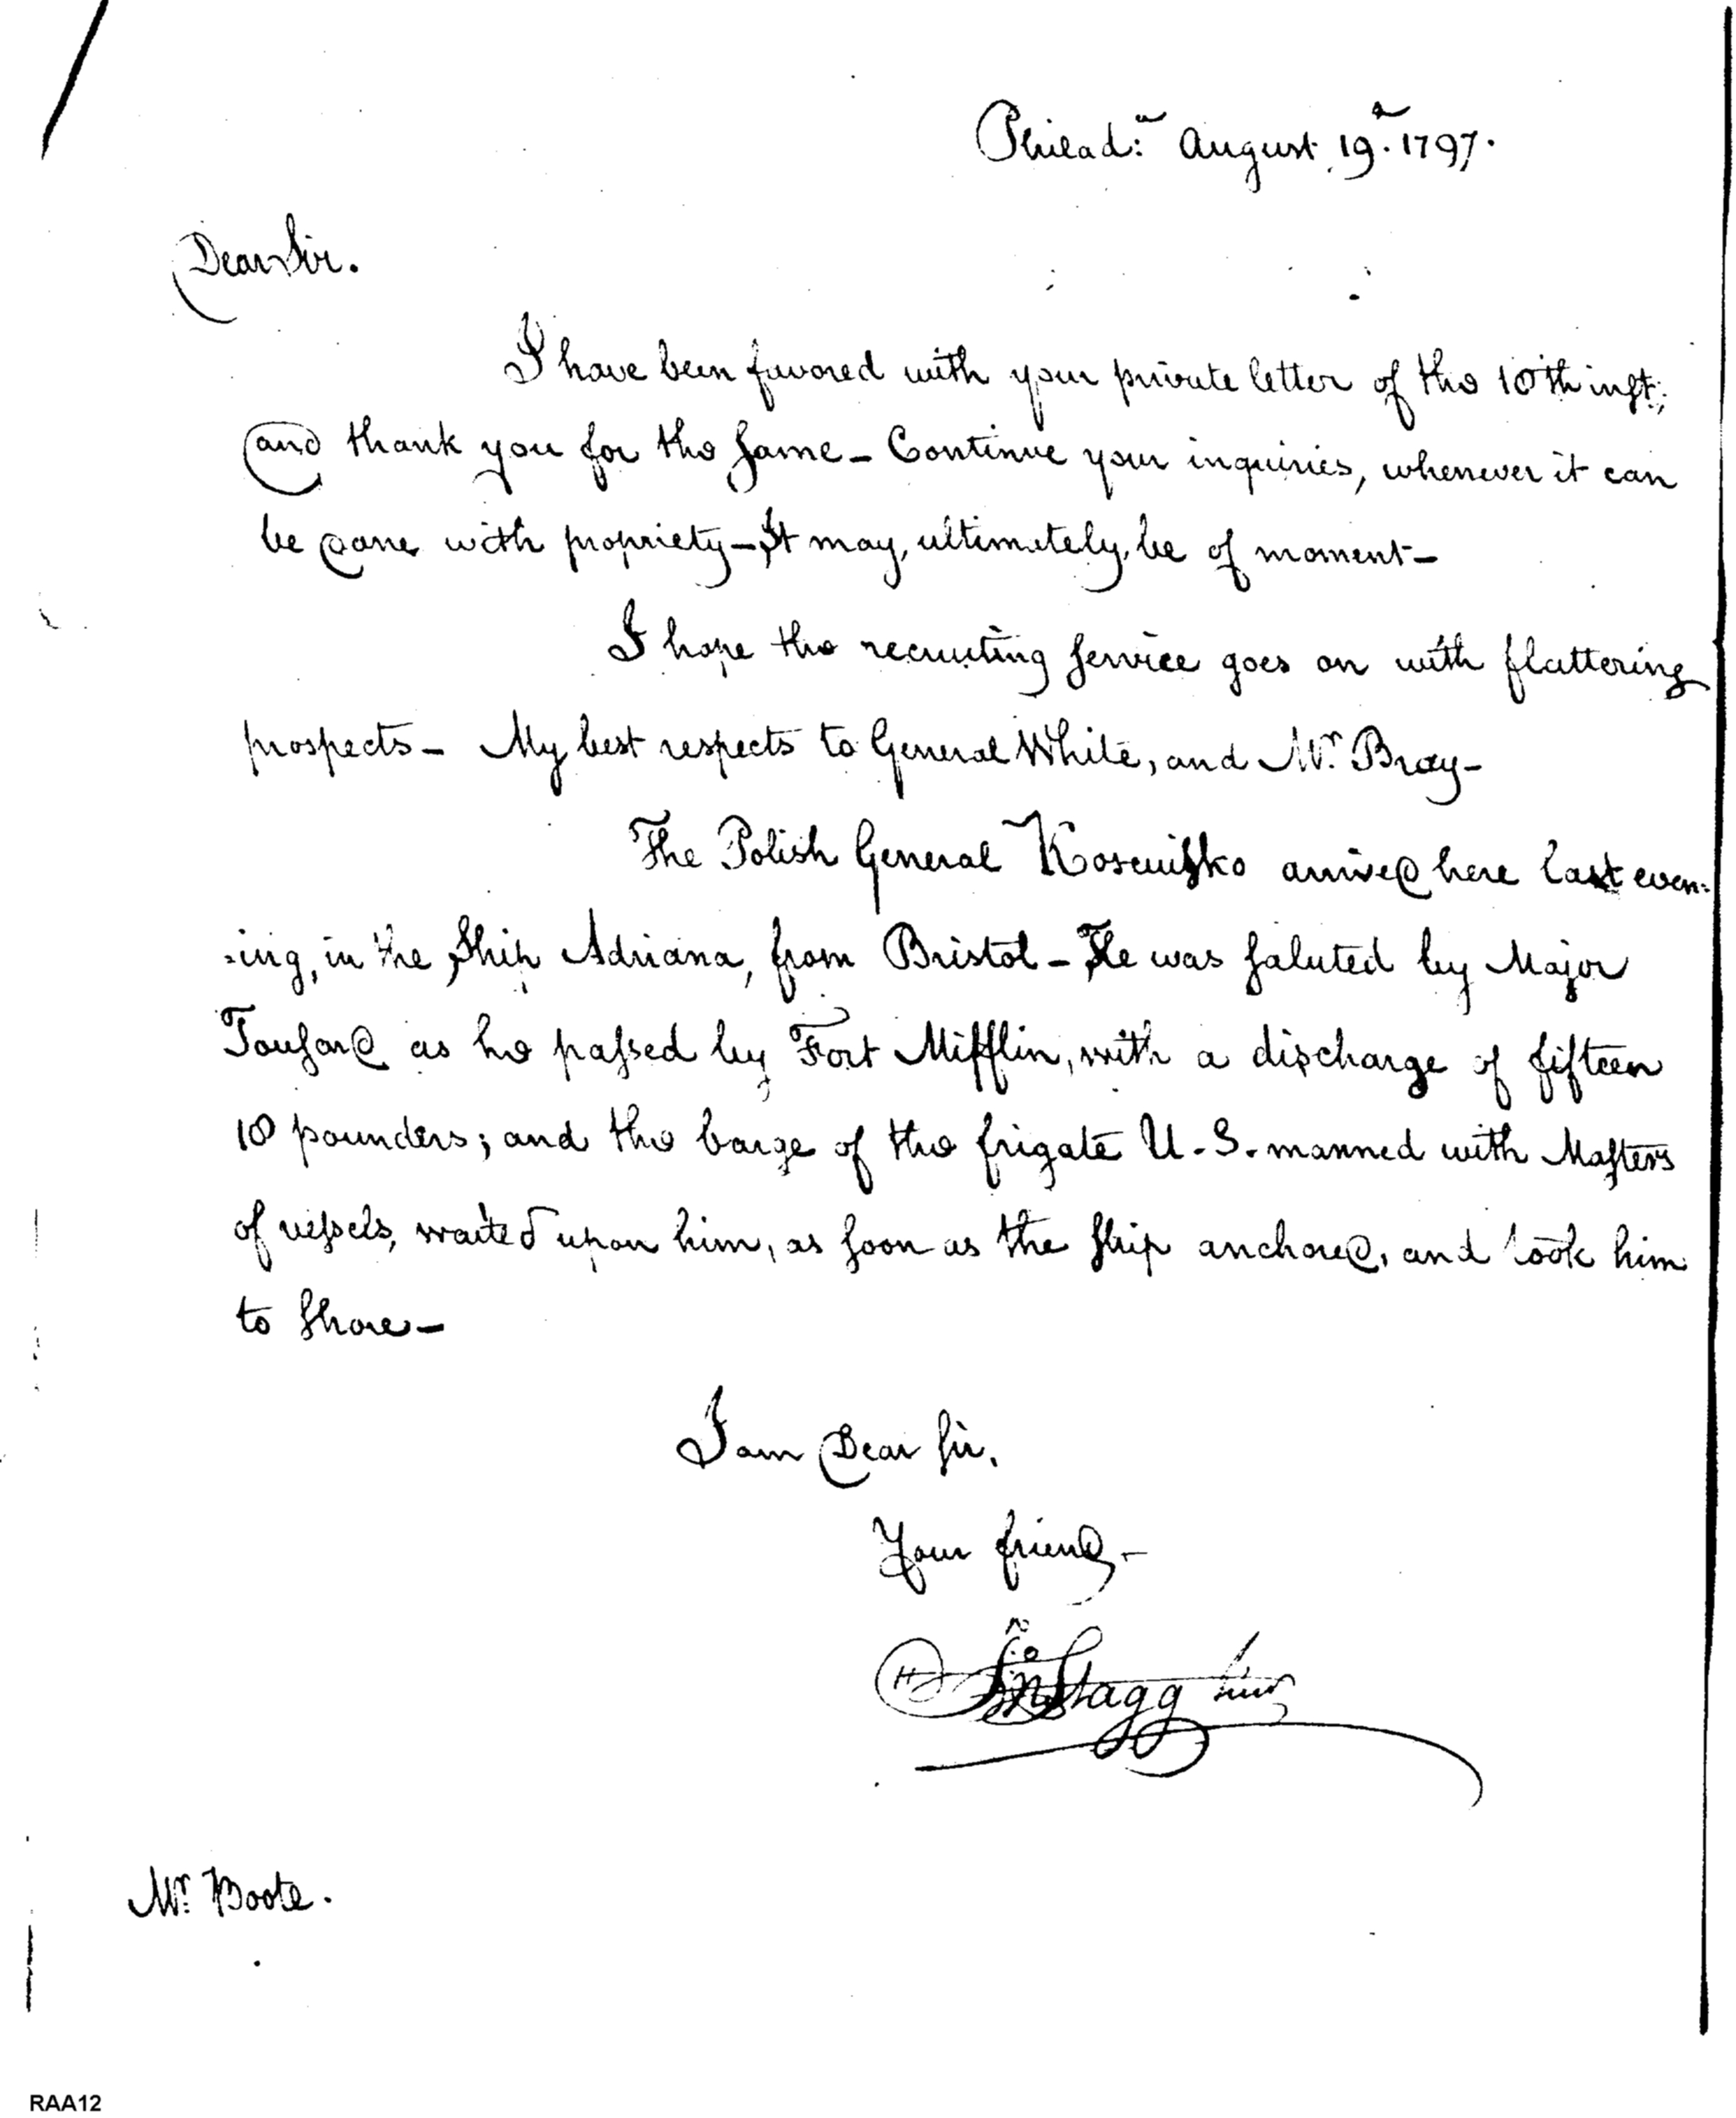 Philad:ᵃ August 19ᵗʰ 1797.
Dear Sir.
I have been favored with your private letter of the 10th inst.;
and thank you for the same – Continue your inquiries, whenever it can
be done with propriety – It may, ultimately, be of moment –
I hope the recruiting service goes on with flattering
prospects – My best respects to General White, and Mr. Bray –
The Polish General Kosciusko arrived here last even:
:ing, in the Ship Adriana, from Bristol – He was saluted by Major
Tousard as he passed by Fort Mifflin, with a discharge of fifteen
18 pounders; and the barge of the frigate U. S. manned with Masters
of vessels, waited upon him, as soon as the ship anchored, and took him
to shore –
I am Dear Sir,
Your friend –
Jnᵒ Stagg Junr
Mr. Boote.
RAA12